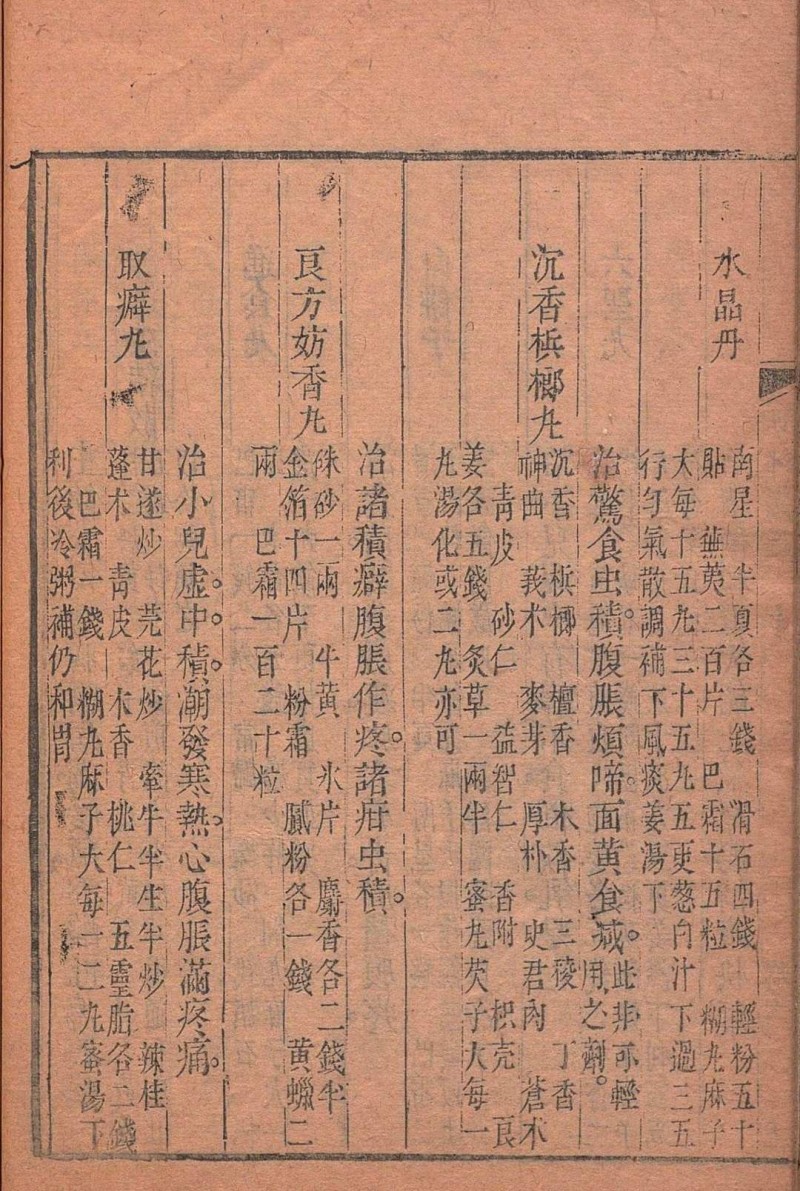 水晶丹
南星　半夏各三錢　滑石四錢　輕粉五十
貼　蕪荑二百片　巴霜十五粒　糊九麻子
大每十五九三十五九五更葱白汁下過三五
行勻氣散調補下風痰姜湯下
沉香梹榔九
治驚食虫積。腹脹煩啼。面黃食减。此非可輕
用之劑。
沉香　梹榔　檀香　木香　三稜　丁香
神曲　莪朮　麥芽　厚朴　史君肉　蒼朮
青皮　砂仁　益智仁　香附　枳壳　良
姜各五錢　炙草一兩半　蜜九芡子大每一
九湯化或二九亦可
良方妨香九
治諸積癖腹脹作疼。諸疳虫積。
硃砂一兩　牛黃　氷片　麝香各二錢半
金箔十四片　粉霜　膩粉各一錢　黃蠟二
兩　巴霜一百二十粒
取癖九
治小兒虛。中積。潮發寒熱。心腹脹滿疼痛。
甘遂炒　芫花炒　牽牛半生半炒　辣桂
蓬朮　靑皮　木香　桃仁　五靈脂各二錢
巴霜一錢　糊九麻子大每一二九蜜湯下
利後冷粥補仍和胃